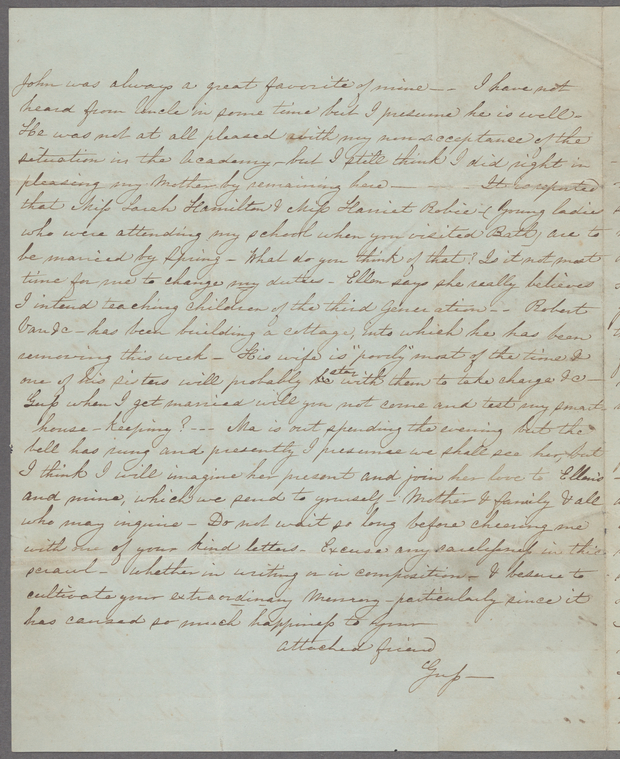 John was always a great favorite of mine - - I have not
heard from Uncle in some time but I presume he is well -
He was not at all pleased with my non-acceptance of the
situation in the Academy - but I still think I did right in
pleasing my Mother by remaining here - - It is reported
that Miss Sarah Hamilton & Miss Harriet Robie - ( Young ladies
who were attending my school when you visited Bath) are to
be married by Spring - What do you think of that? Is it not most
time for me to change my duties - Ellen says she really believes
I intend teaching children of the third Generation - - Robert
Van &c - has been building a cottage, into which he has been
removing this week - His wife is "poorly" most of the time &
one of his sisters will probably stay with them to take charge &c -
Guss when I get married will you not come and test my smart
house-keeping? - - - Ma is out spending the evening but the
bell has rung and presently I presume we shall see her, but
I think I will imagine her present and join her love to Ellen's
and mine, which we send to yourself - Mother & family & all
who may inquire - Do not wait so long before cheering me
with one of your kind letters - Excuse any carelessness in this
scrawl - whether in writing or in composition - & be sure to
cultivate your extraordinary Memory - particularly since it
has caused so much happiness to Your
attached friend
Guss -